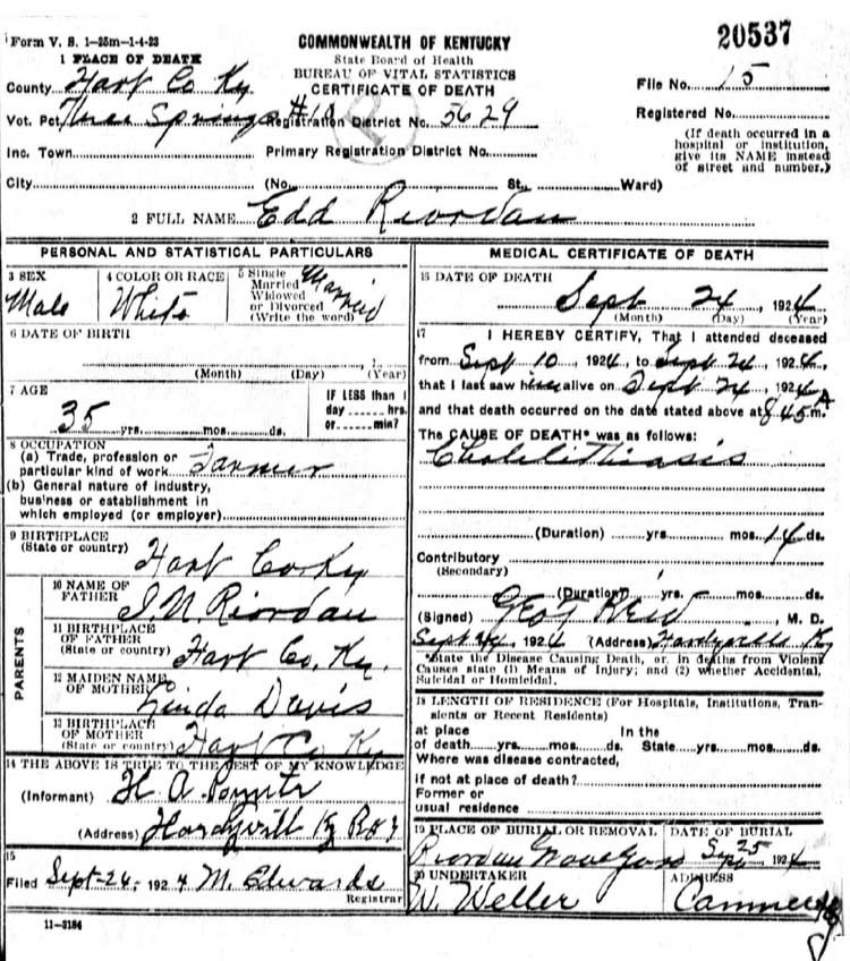 Form V. S. 1-25m-1-4-23
COMMONWEALTH OF KENTUCKY
State Board of Health
BUREAU OF VITAL STATISTICS
CERTIFICATE OF DEATH
20537
1 PLACE OF DEATH
County Hart Co Ky
File No. 15
Vot. Pct. Three Springs #10 Registration District No. 5629
Registered No.
Inc. Town Primary Registration District No.
(If death occurred in a hospital or institution, give its NAME instead of street and number.)
City (No. St., Ward)
2 FULL NAME Edd Riordan
PERSONAL AND STATISTICAL PARTICULARS
3 SEX
Male
4 COLOR OR RACE
White
5 Single
Married
Widowed
or Divorced
(Write the word)
Married
6 DATE OF BIRTH
, 1
(Month) (Day) (Year)
7 AGE
35 yrs. mos. ds.
IF LESS than 1
day hrs.
or min?
8 OCCUPATION
(a) Trade, profession or
particular kind of work Farmer
(b) General nature of industry,
business or establishment in
which employed (or employer)
9 BIRTHPLACE
(State or country) Hart Co. Ky
PARENTS
10 NAME OF
FATHER J. N. Riordan
11 BIRTHPLACE
OF FATHER
(State or country) Hart Co. Ky.
12 MAIDEN NAME
OF MOTHER Linda Davis
13 BIRTHPLACE
OF MOTHER
(State or country) Hart Co Ky
14 THE ABOVE IS TRUE TO THE BEST OF MY KNOWLEDGE
(Informant) H. A.
(Address) Hardyvill Ky
15
Filed Sept-26, 1924 M. Edwards
Registrar
11-3184
MEDICAL CERTIFICATE OF DEATH
16 DATE OF DEATH
Sept 24, 1924
(Month) (Day) (Year)
17 I HEREBY CERTIFY, That I attended deceased
from Sept 10, 1924, to Sept 24, 1924,
that I last saw him alive on Sept 24, 1924
and that death occurred on the date stated above at 8 45 A m.
The CAUSE OF DEATH* was as follows:
Cholelithiasis
(Duration) yrs. mos. 14 ds.
Contributory
(Secondary)
(Duration) yrs. mos. ds.
(Signed) Geo J Reid, M. D.
Sept 24, 1924 (Address) Hardyville Ky
*State the Disease Causing Death, or, in deaths from Violent
Causes state (1) Means of Injury; and (2) whether Accidental,
Suicidal or Homicidal.
18 LENGTH OF RESIDENCE (For Hospitals, Institutions, Tran-
sients or Recent Residents)
at place In the
of death yrs. mos. ds. State yrs. mos. ds.
Where was disease contracted,
if not at place of death?
Former or
usual residence
19 PLACE OF BURIAL OR REMOVAL
Riordan Grave Yard
DATE OF BURIAL
Sept 25 1924
20 UNDERTAKER
W. Weller
ADDRESS
Canmer Ky